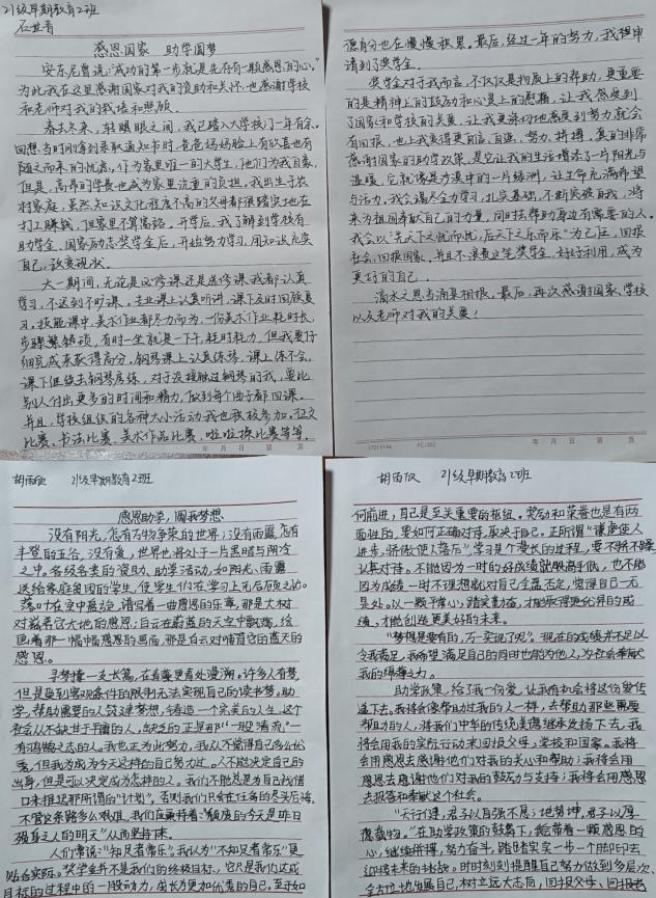 21级早期教育2班
石芷青
感恩国家 助学圆梦
安东尼曾说:“成功的第一步就是先存有一颗感恩的心。”
为此我在这里感谢国家对我的资助和关怀,也感谢学校
和老师对我的栽培和照顾。
春去冬来,转眼眼之间,我已踏入大学校门一年有余。
回想当时刚拿到录取通知书时,爸爸妈妈脸上有欣喜也有
随之而来的忧虑,作为家里唯一的大学生,他们为我自豪,
但是,高昂的学费也成为家里沉重的负担。我出生于农
村家庭,虽然知识文化程度不高的父母都很踏实地在
打工赚钱,但家里不算富裕。开学后,我了解到学校有
助学金,国家励志奖学金后,开始努力学习,用知识充实
自己,改变现状。
大一期间,无论是必修课还是选修课我都认真
学习,不迟到不旷课。专业课上认真听讲,课下及时回顾复
习,技能课中,美术作业都尽力而为,一份美术作业耗时长,
步骤繁琐,有时一坐就是一下午,耗时耗力,但我要仔
细完成来获得高分。钢琴课上认真练琴,课上练不会,
课下继续去钢琴房练,对于没接触过钢琴的我,要比
别人付出更多的时间和精力,做到每个曲子都回课。
并且,学校组织的各种大小活动我也积极参加。征文
比赛、书法比赛、美术作品比赛、啦啦操比赛等等,
德育分也在慢慢积累。最后,经过一年的努力,我得申
请到了奖学金。
奖学金对于我而言,不仅仅是物质上的帮助,更重要
的是精神上的鼓励和心灵上的慰藉,让我感受到
了国家和学校的关爱,让我更深切地感受到努力就会
有回报,也让我变得更自信、自强、努力、拼搏,真的非常
感谢国家的助学政策,是它让我的生活增添了一片阳光与
温暖,它就像是沙漠中的一片绿洲,让生命充满希望
与活力。我会竭尽全力学习,扎实基础,不断突破自我,将
来为祖国奉献自己的力量,同时扶帮助身边有需要的人。
我会以“先天下之忧而忧,后天下之乐而乐”为己任,回报
社会,回报国家。并且不浪费这笔奖学金,好好利用,成为
更好的自己。
滴水之恩当涌泉相报。最后,再次感谢国家、学校
以及老师对我的关爱!
年 月 日 第 页
年 月 日 第 页
21级早期教育2班
感恩助学,圆我梦想
没有阳光,怎有万物争荣的世界;没有雨露,怎有
丰登的五谷,没有爱,世界也将处于一片黑暗与阴冷
之中。各级各类的资助、助学活动,如阳光、雨露
送给家庭贫困的学生,使学生们在学习上无后顾之忧。
落叶在空中盘旋,谱写着一曲感恩的乐章,那是大树
对滋养它大地的感恩;白云在蔚蓝的天空中飘荡,绘
画着那一幅幅感恩的画面,那是白云对哺育它的蓝天的
感恩。
寻梦撑一支长篙,在青草更青处漫溯。许多人有梦
但是受到客观条件的限制无法实现自己的读书梦,助
学,帮助需要的人筑建梦想,铸造一个完美的人生。这个
社会从不缺甘于平庸的人,缺乏的正是那“一股清流”一
有鸿鹄之志的人。我也正为此努力,我从不觉得自己多么优
秀,但我为成为今天这样的自己努力过。人不能决定自己的
出身,但是可以决定成为怎样的人。我们不能总是为自己找借
口来推迟那所谓的“计划”。否则我们只会在任务的尽头后悔,
不管这条路多么艰难,我们应秉持着“颓废的今天是昨日
殒身之人的明天”从而坚持下来。
人们常说:“知足者常乐”,我认为“不知足者常乐”更
贴合实际。奖学金并不是我们的终极目标,它只是我们达成
目标的过程中的一股动力,成长为更加优秀的自己。至于如
21级早期教育2班
何前进,自己是至关重要的枢纽。奖励和荣誉也是有两
面性的,要如何正确对待,取决于自己。正所谓“谦虚使人
进步,骄傲使人落后”学习是个漫长的过程,要不骄不躁
认真对待。不能因为一时的好成绩就眼高手低,也不能
因为成绩一时不理想就对自己全盘否定,觉得自己一无
是处。以一颗平常心,踏实勤奋,才能取得更优异的成
绩,才能创造更美好的未来。
“梦想是要有的,万一实现了呢”。现在的成绩并不足以
令我满足,我希望满足自己的同时也能为他人,为社会奉献
我的绵薄之力。
助学政策,给了我一份爱,让我有机会将这份爱传
递下去。我将会像帮助过我的人一样,去帮助那些需要
帮助的人,将我们中华的传统美德继承发扬下去。我
将会用我的实际行动来回报父母,学校和国家。我将
会用感恩去感谢他们对我的关心和帮助;我将会用
感恩去感谢他们对我的鼓励与支持;我将会用感恩
去报答和奉献这个社会。
“天行健,君子以自强不息;地势坤,君子以厚
德载物。”在助学政策的鼓舞下,我带着一颗感恩的
心,继续拼搏,努力奋斗,踏踏实实一步一个脚印去
迎接未来的挑战。时时刻刻提醒自己努力做到多层次、
全方位地发展自己,树立远大志向,回报父母、回报老